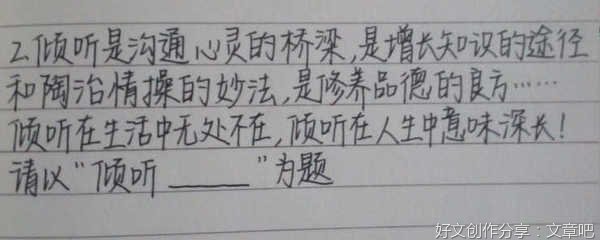 2.倾听是沟通心灵的桥梁,是增长知识的途径
和陶冶情操的妙法,是修养品德的良方……
倾听在生活中无处不在,倾听在人生中意味深长!
请以“倾听______”为题
好文创作分享:文章吧